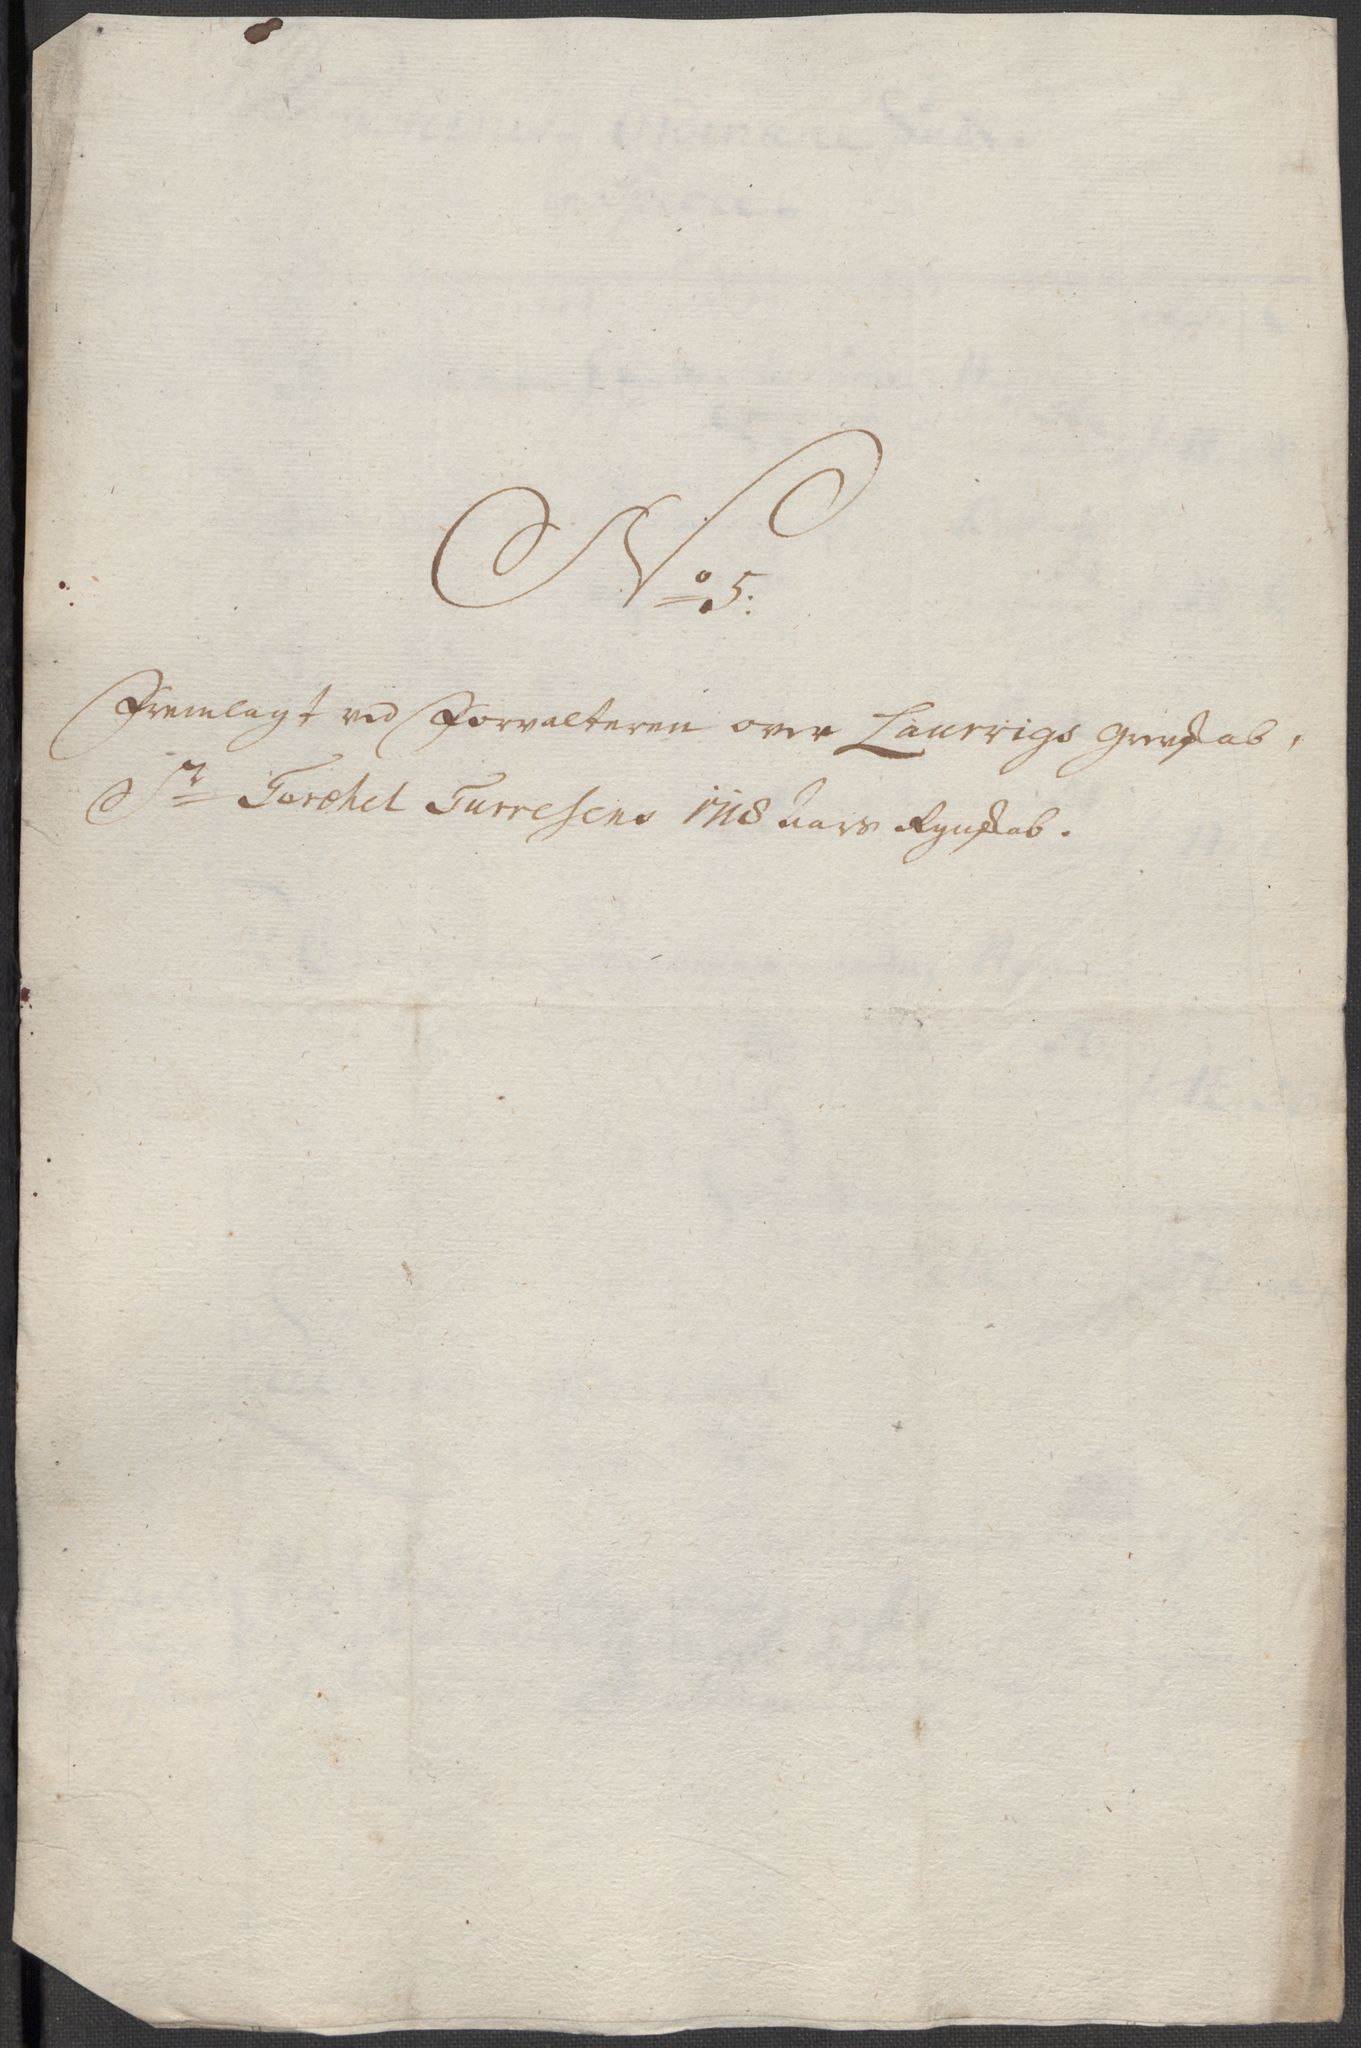 No 5:
Fremlagt ved Forvalteren over Laurvigs Grevskab,
Sr Torchel Turresens 1718 Aars Regnskab.